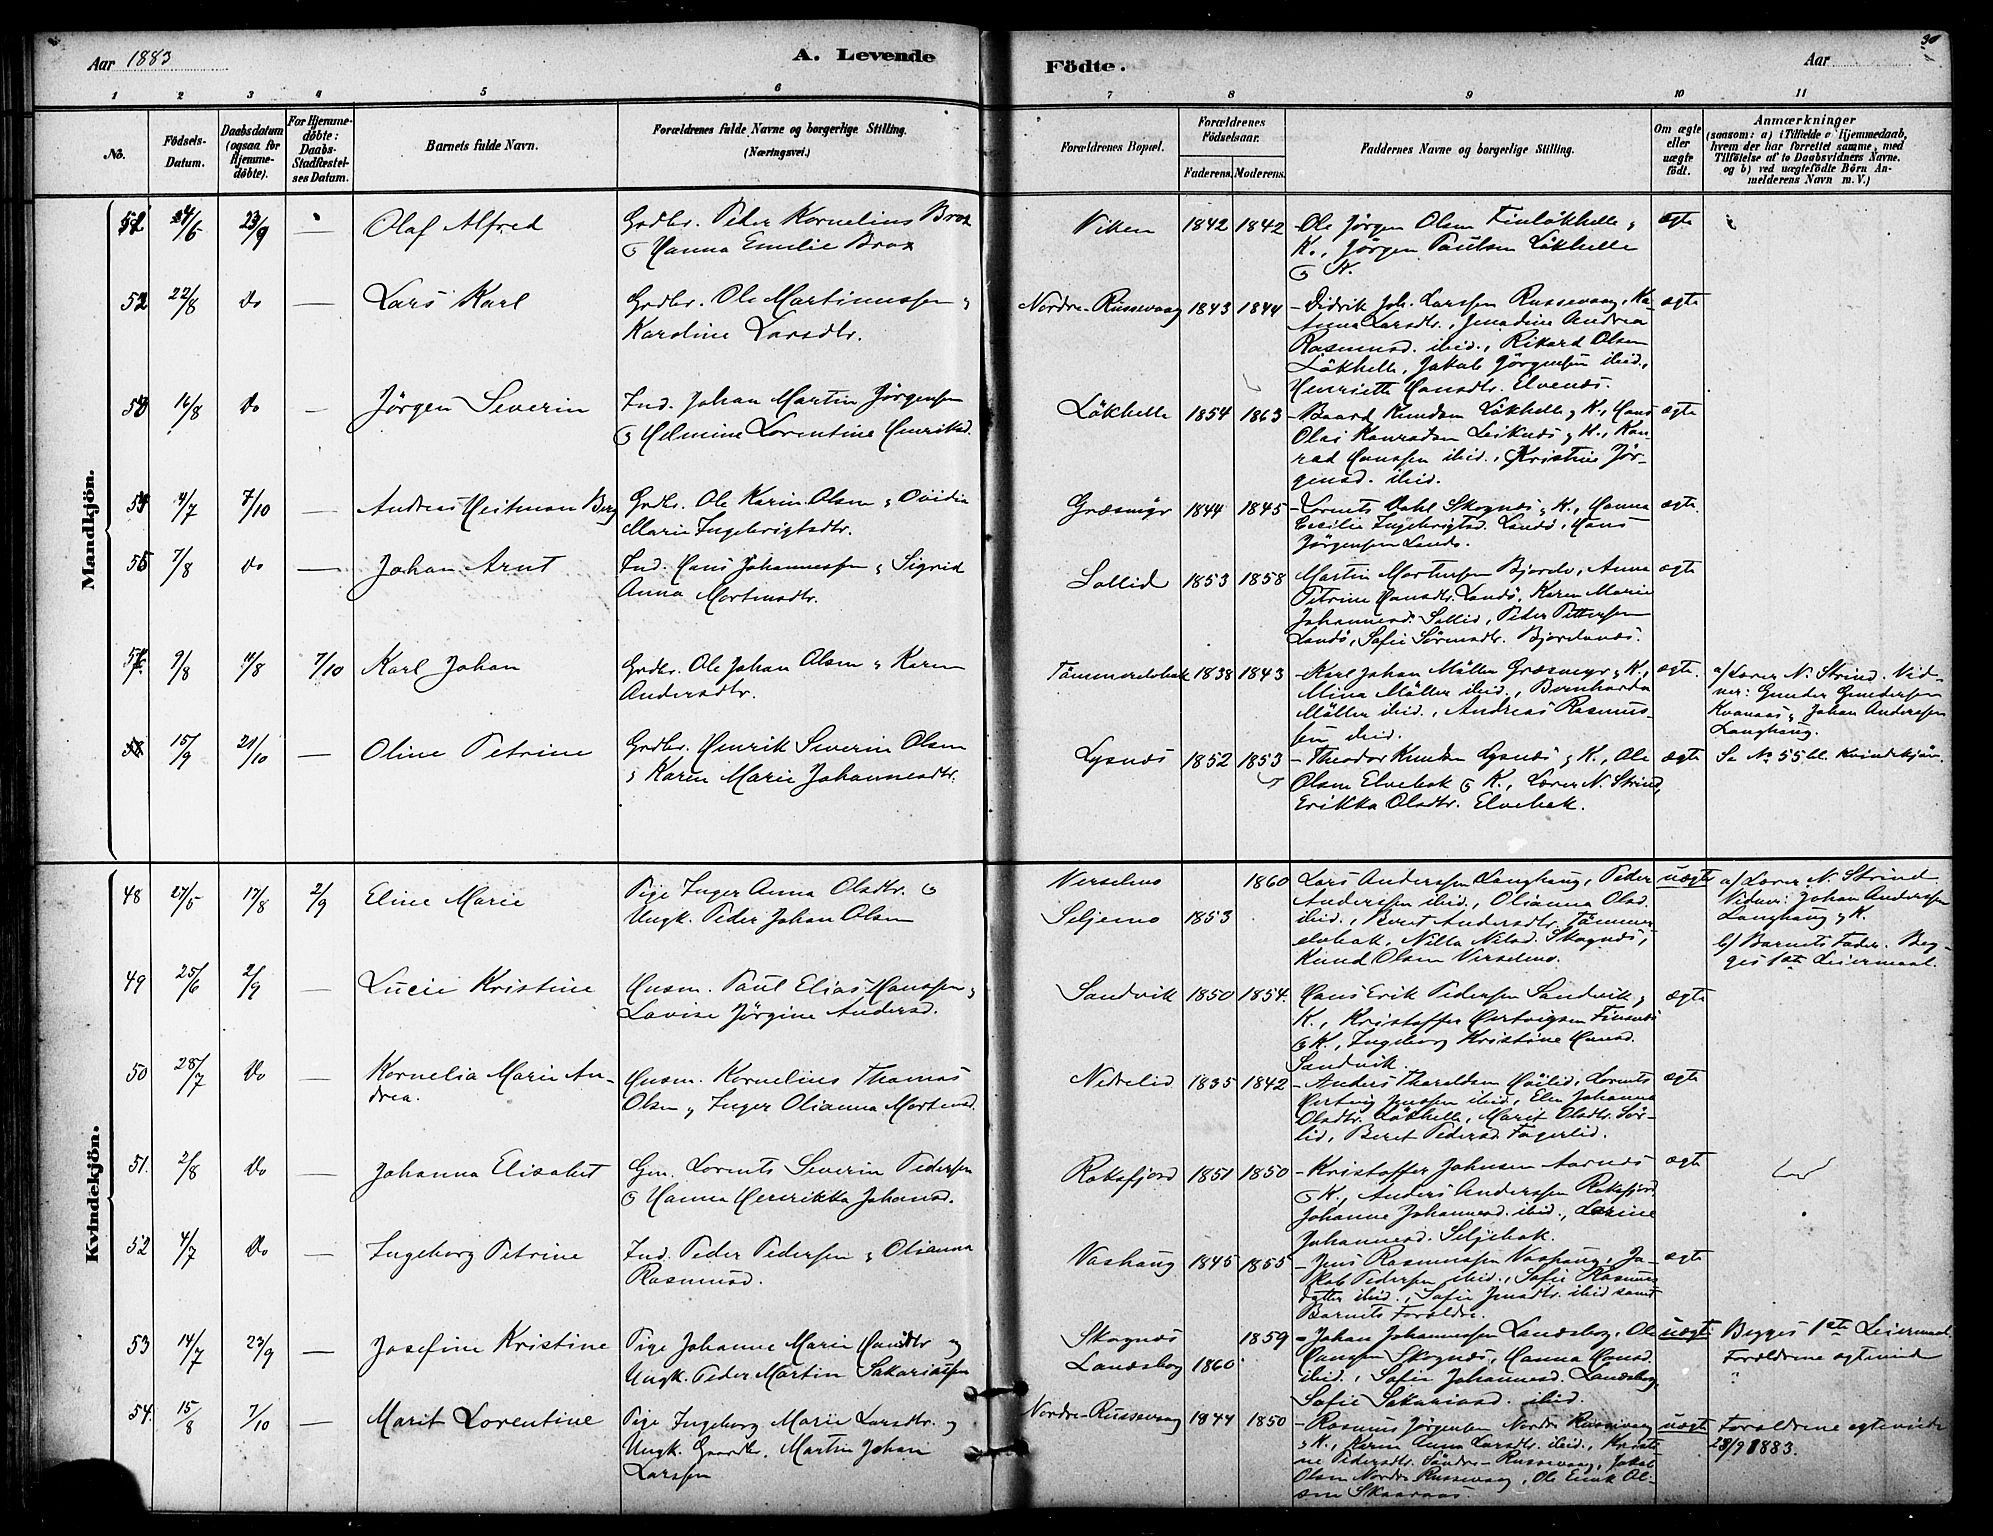 Aar 1883
A. Levende
Födte.
Aar
30
1 2 3 4 5 6 7 8 9 10 11
No.
Födsels-Datum.
Daabsdatum (ogsaa for Hjemme-döbte).
For Hjemme-döbte: Daabs-Stadfæstel-ses Datum.
Barnets fulde Navn.
Forældrenes fulde Navne og borgerlige Stilling.
(Næringsvei.)
Forældrenes Bopæl.
Forældrenes Födselsaar.
Faderens. Moderens.
Faddernes Navne og borgerlige Stilling.
Om ægte eller uægte födt.
Anmærkninger
(saasom: a) i Tilfælde af Hjemmedaab,
hvem der har forrettet samme, med
Tilföielse af to Daabsvidners Navne.
og b) ved uægtefödte Börn An-
melderens Navn m. V.)
Mandkjön.
24/6 23/9 — Olaf Alfred
Grdbr. Peder Kornelius Brox
& Hanna Emilie Brox
Viken 1842 1842
Ole Jørgen Olsen Finløkhelle &
K., Jørgen Paulsen Løkhelle
& K.
ægte
52 22/8 Do — Lars Karl
Grdbr. Ole Martinussen &
Karoline Larsdtr.
Nordre-Russevaag 1843 1844
Didrik Joh. Larssen Russevaag, Ka-
Anna Larsdtr., Jensine Andrea
Rasmusd. ibid., Rikard Olsen
Løkhelle, Jakob Jørgensen ibid.,
Henriette Hansdtr. Elvenæs.
ægte
53 16/8 Do — Jörgen Severin
Ind. Johan Martin Jørgensen
& Helmine Lorentine Henriksd.
Løkhelle 1854 1863
Baard Knudsen Løkhelle & K., Hans
Olai Konradsen Leiknes & K., Kon-
rad Hanssen ibid., Kristine Jør-
gensd. ibid.
ægte
54 4/7 7/10 — Andreas Heitman Berg
Grdbr. Ole Karin Olsen & Ovidia
Marie Ingebrigtsdtr.
Græsmyr 1844 1845
Lorents Dahl Skognæs & K., Hanna
Cecilie Ingebrigtsd. Landø, Hans
Jørgensen Landø.
ægte.
55 7/8 Do — Johan Arnt
Ind. Hans Johannessen & Sigrid
Anna Mortensdtr.
Sollid 1853 1858
Martin Mortensen Bjorelv, Anna
Petrine Hansdtr. Landø, Karen Marie
Johannesd. Sollid, Peder Pettersen
Landø, Sofie Sørensdtr. Bjorelvnæs.
ægte
56 9/8 11/8 7/10 Karl Johan
Grdbr. Ole Johan Olsen & Karen
Andersdtr.
Tømmerelvbak 1838 1843
Karl Johan Møller Græsmyr & K.,
Mina Møller ibid., Bernharda
Møller ibid., Andreas Rasmus-
sen ibid.
ægte.
a/ Lærer N. Strind. Vid-
ner: Gunder Gundersen
Kvanaas & Johan Anderssen
Langhaug.
15/9 21/10 — Oline Petrine
Grdbr. Henrik Severin Olsen
& Karen Marie Johannesdtr.
Lysnæs 1852 1853
Theodor Knudsen Lysnæs & K., Ole
Olsen Elvebak & K., Lærer N. Strind,
Erikka Olsdtr. Elvebak.
ægte
Se No 55 bl. Kvindekjøn.
Kvindekjön.
48 27/5 17/8 2/9 Eline Marie
Pige Inger Anna Olsdtr. &
Ungk. Peder Johan Olsen
Verselmo 1860
Seljemo 1853
Lars Anderssen Langhaug, Peder
Anderssen ibid., Olianna Olsd.
ibid., Beret Andersdtr. Tømmer-
elvbak, Nilla Nilsd. Skognæs,
Knud Olsen Verselmo.
uægte
a/ Lærer N. Strind
Vidner: Johan Anderssen
Langhaug & K.
b/ Barnets Fader. Beg-
ges 1ste Leiermaal.
49 25/6 2/9 Lucie Kristine
Husm. Paul Elias Hanssen &
Lavise Jørgine Andersd.
Sandvik 1850 1854.
Hans Erik Pedersen Sandvik &
K., Kristoffer Hertvigsen Finsnæs
& K., Ingeborg Kristine Hansd.
Sandvik.
ægte
50 28/7 Do — Kornelia Marie An-
drea.
Husm. Kornelius Thomas
Olsen & Inger Olianna Mortensd.
Nedrelid 1835 1842
Anders Tharaldsen Høilid, Lorents
Hertvig Jenssen ibid., Elen Johanna
Olsdtr. Løkhelle, Marit Olsdtr. Sør-
lid, Beret Pedersd. Fagerlid.
ægte
51. 2/8 Do — Johanna Elisabet
Gm. Lorents Severin Pedersen
& Hanna Henrikka Johansd.
Roksfjord 1851 1850
Kristoffer Johnsen Aarnæs
& K., Anders Anderssen Roksfjord,
Johanne Johannesd. ibid., Lorine
Johannesd. Seljebak.
ægte
52 4/7 Do — Ingeborg Petrine
Ind. Peder Pedersen & Olianna
Rasmusd.
Vashaug 1845 1855
Jens Rasmussen Vashaug, Ja-
kob Pedersen ibid., Sofie Rasmus-
datter ibid., Sofie Jensdtr. ibid samt
Barnets Forældre.
ægte
53 14/7 23/9 — Josefine Kristine
Pige Johanne Marie Hansdtr &
Ungk. Peder Martin Sakariassen
Skognæs 1859
Landsbog 1860
Johan Johannessen Landsbog, Ole
Hansen Skognæs, Hanna Hansd.
ibid., Sofie Johannesd. Landsbog,
Sofie Sakariasd. ibid.
uægte
Begges 1ste Leiermaal.
Forældrene egteviede
54. 15/8 7/10 — Marit Lorentine
Pige Ingeborg Marie Larsdtr. &
Ungk. Gaardbr. Martin Johan
Larssen
Nordre-Russevaag 1844 1850
Rasmus Jørgensen Nordre Russevaag
& K., Karen Anna Larsdtr. ibid., Kristi-
ne Pedersdtr. Søndre-Russevaag, Jakob
Olsen Nordre Russevaag, Ole Enok Ol-
sen Skaaraas.
uægte
Forældrene egteviede
23/9 1883.